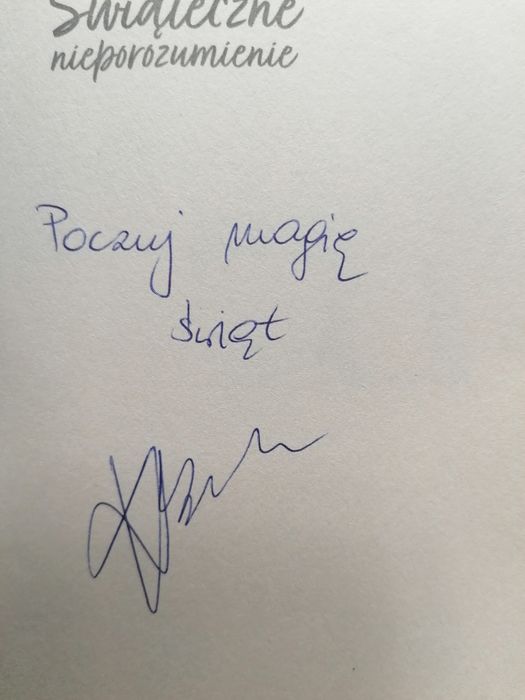 Świąteczne
nieporozumienie
Poczuj magię
świąt